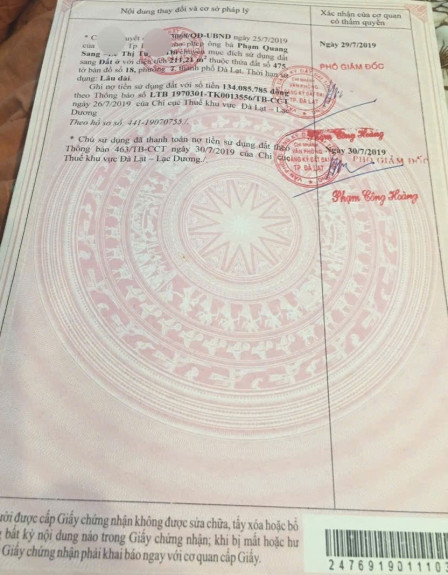 Nội dung thay đổi và cơ sở pháp lý
Xác nhận của cơ quan
có thẩm quyền
* C yết 3068/QĐ-UBND ngày 25/7/2019
của T phép ông bà Phạm Quang
Sang Thị mục đích sử dụng đất
sang Đất ở với diện tích 211,21 m² thuộc thửa đất số 475,
tờ bản đồ số 18, phường 2, thành phố Đà Lạt. Thời hạn sử
dụng: Lâu dài.
Ghi nợ tiền sử dụng đất với số tiền 134.085.785 đồng
theo Thông báo số LTB 1970301-TK0013556/TB-CCT
ngày 26/7/2019 của Chi cục Thuế khu vực Đà Lạt – Lạc
Dương
Theo hồ sơ số: 441-19070755./.
Ngày 29/7/2019
PHÓ GIÁM ĐỐC
Phạm Công Hoàng
* Chủ sử dụng đã thanh toán nợ tiền sử dụng đất theo
Thông báo 463/TB-CCT ngày 30/7/2019 của Chi cục
Thuế khu vực Đà Lạt – Lạc Dương./.
Ngày 30/7/2019
PHÓ GIÁM ĐỐC
Phạm Công Hoàng
CHI NHÁNH
VĂN PHÒNG
ĐĂNG KÝ ĐẤT ĐAI
TP. ĐÀ LẠT
được cấp Giấy chứng nhận không được sửa chữa, tẩy xóa hoặc bổ
bất kỳ nội dung nào trong Giấy chứng nhận; khi bị mất hoặc hư
Giấy chứng nhận phải khai báo ngay với cơ quan cấp Giấy.
2476919011103